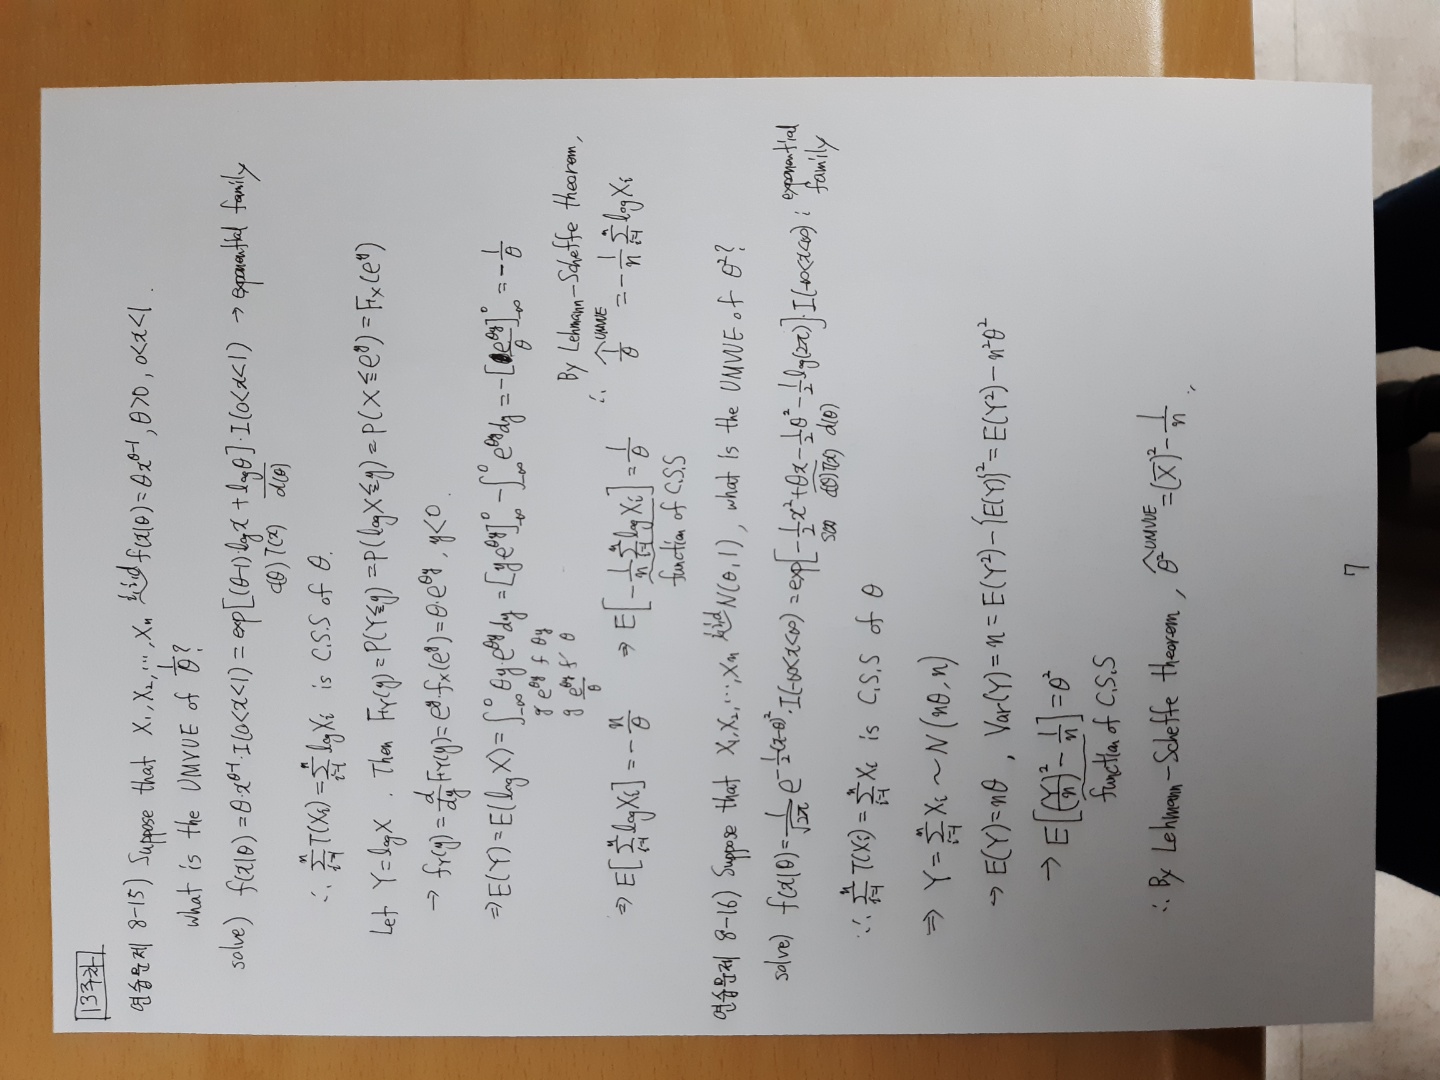 13주차
연습문제 8-15) Suppose that X₁, X₂, ···, Xₙ iid f(x|θ)=θx^(θ-1), θ>0, 0<x<1.
what is the UMVUE of 1/θ?
solve) f(x|θ)=θ·x^(θ-1)·I(0<x<1)=exp[(θ-1)·log x + log θ]·I(0<x<1) → exponential family
c(θ) T(x) d(θ)
∴ Σ_(i=1)^n T(Xᵢ)=Σ_(i=1)^n log Xᵢ is C.S.S of θ.
Let Y=log X. Then F_Y(y)=P(Y≤y)=P(log X≤y)=P(X≤e^y)=F_X(e^y)
→ f_Y(y)=d/dy F_Y(y)=e^y·f_X(e^y)=θ·e^(θy), y<0.
⇒E(Y)=E(log X)=∫_(-∞)^0 θy·e^(θy)dy=[ye^(θy)]_(-∞)^0-∫_(-∞)^0 e^(θy)dy=-[e^(θy)/θ]_(-∞)^0=-1/θ
g' e^(θy) f θy
g e^(θy)/θ f' θ
⇒E[Σ_(i=1)^n log Xᵢ]=-n/θ ⇒E[-1/n Σ_(i=1)^n log Xᵢ]=1/θ
function of C.S.S
By Lehmann-Scheffe theorem,
∴ (1/θ)^UMVUE=-1/n Σ_(i=1)^n log Xᵢ
연습문제 8-16) Suppose that X₁, X₂, ···, Xₙ iid N(θ, 1), what is the UMVUE of θ²?
solve) f(x|θ)=1/√2π e^(-1/2(x-θ)²)·I(-∞<x<∞)=exp[-1/2x²+θx-1/2θ²-1/2log(2π)]·I(-∞<x<∞) : exponential family
S(x) c(θ)T(x) d(θ)
∴ Σ_(i=1)^n T(Xᵢ)=Σ_(i=1)^n Xᵢ is C.S.S of θ
⇒ Y=Σ_(i=1)^n Xᵢ ~ N(nθ, n)
→ E(Y)=nθ, Var(Y)=n=E(Y²)-{E(Y)}²=E(Y²)-n²θ²
→ E[(Y/n)²-1/n]=θ²
function of C.S.S
∴ By Lehmann-Scheffe theorem, θ²^UMVUE=(X̄)²-1/n.
7